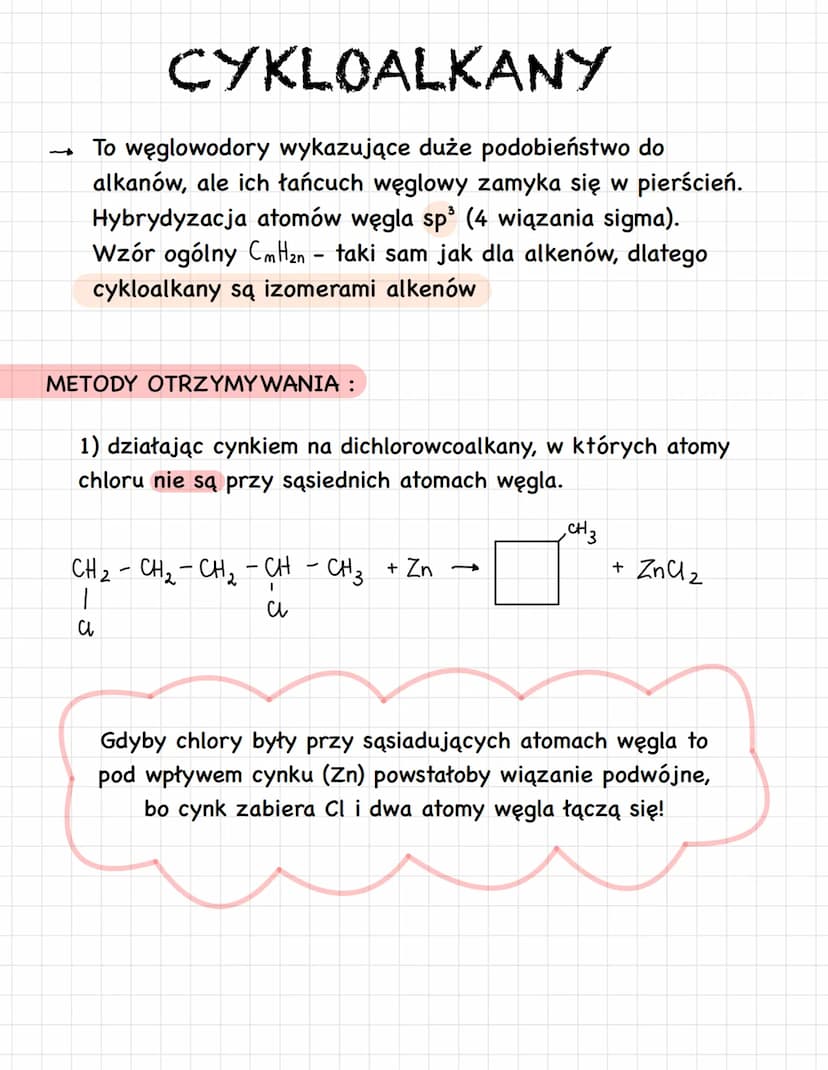 CYKLOALKANY
→ To węglowodory wykazujące duże podobieństwo do
alkanów, ale ich łańcuch węglowy zamyka się w pierścień.
Hybrydyzacja atomów węgla sp³ (4 wiązania sigma).
Wzór ogólny CₙH₂ₙ - taki sam jak dla alkenów, dlatego
cykloalkany są izomerami alkenów
METODY OTRZYMYWANIA :
1) działając cynkiem na dichlorowcoalkany, w których atomy
chloru nie są przy sąsiednich atomach węgla.
CH₃
CH₂ - CH₂ - CH₂ - CH - CH₃ + Zn → + ZnCl₂
Cl Cl
Gdyby chlory były przy sąsiadujących atomach węgla to
pod wpływem cynku (Zn) powstałoby wiązanie podwójne,
bo cynk zabiera Cl i dwa atomy węgla łączą się!